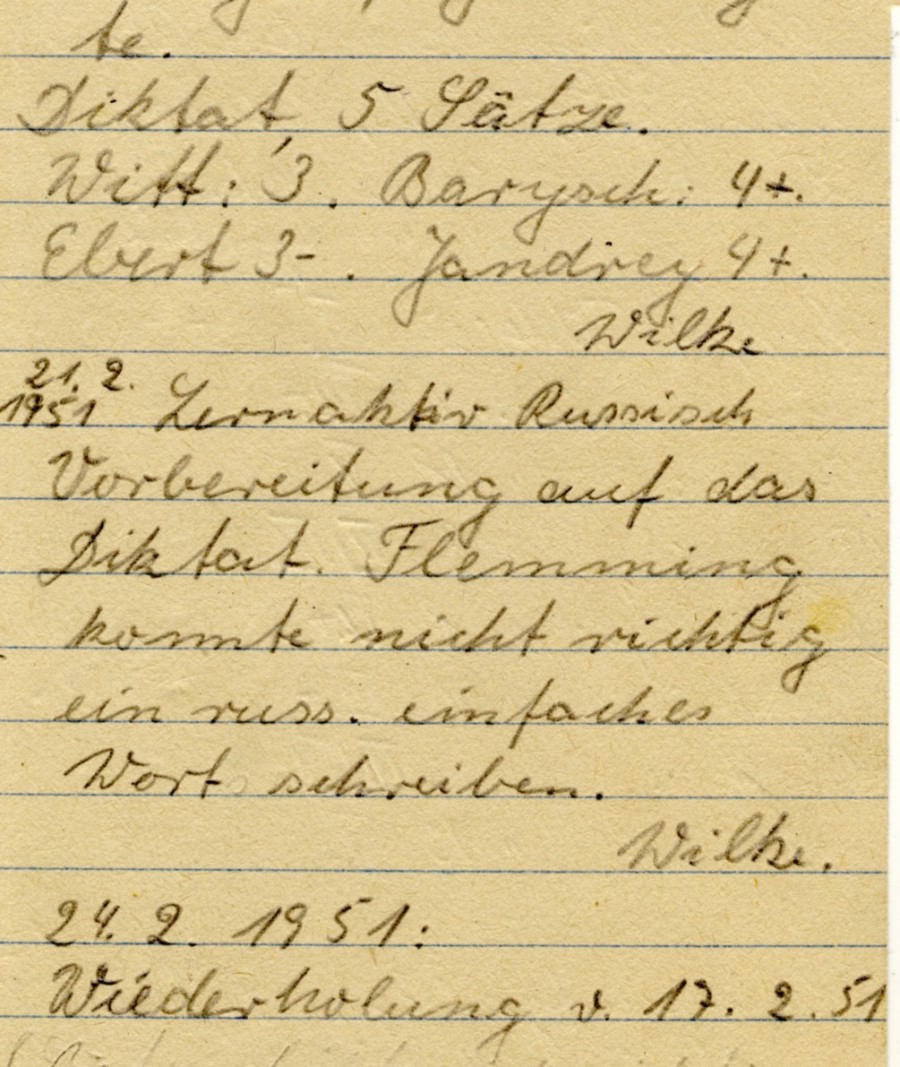 te.
Diktat, 5 Sätze.
Witt: 3. Barysch: 4+.
Ebert 3-. Jandrey 4+.
Wilke
21. 2.
1951 Lernaktiv Russisch
Vorbereitung auf das
Diktat. Flemming
konnte nicht richtig
ein russ. einfaches
Wort schreiben.
Wilke.
24. 2. 1951:
Wiederholung v. 17. 2. 51